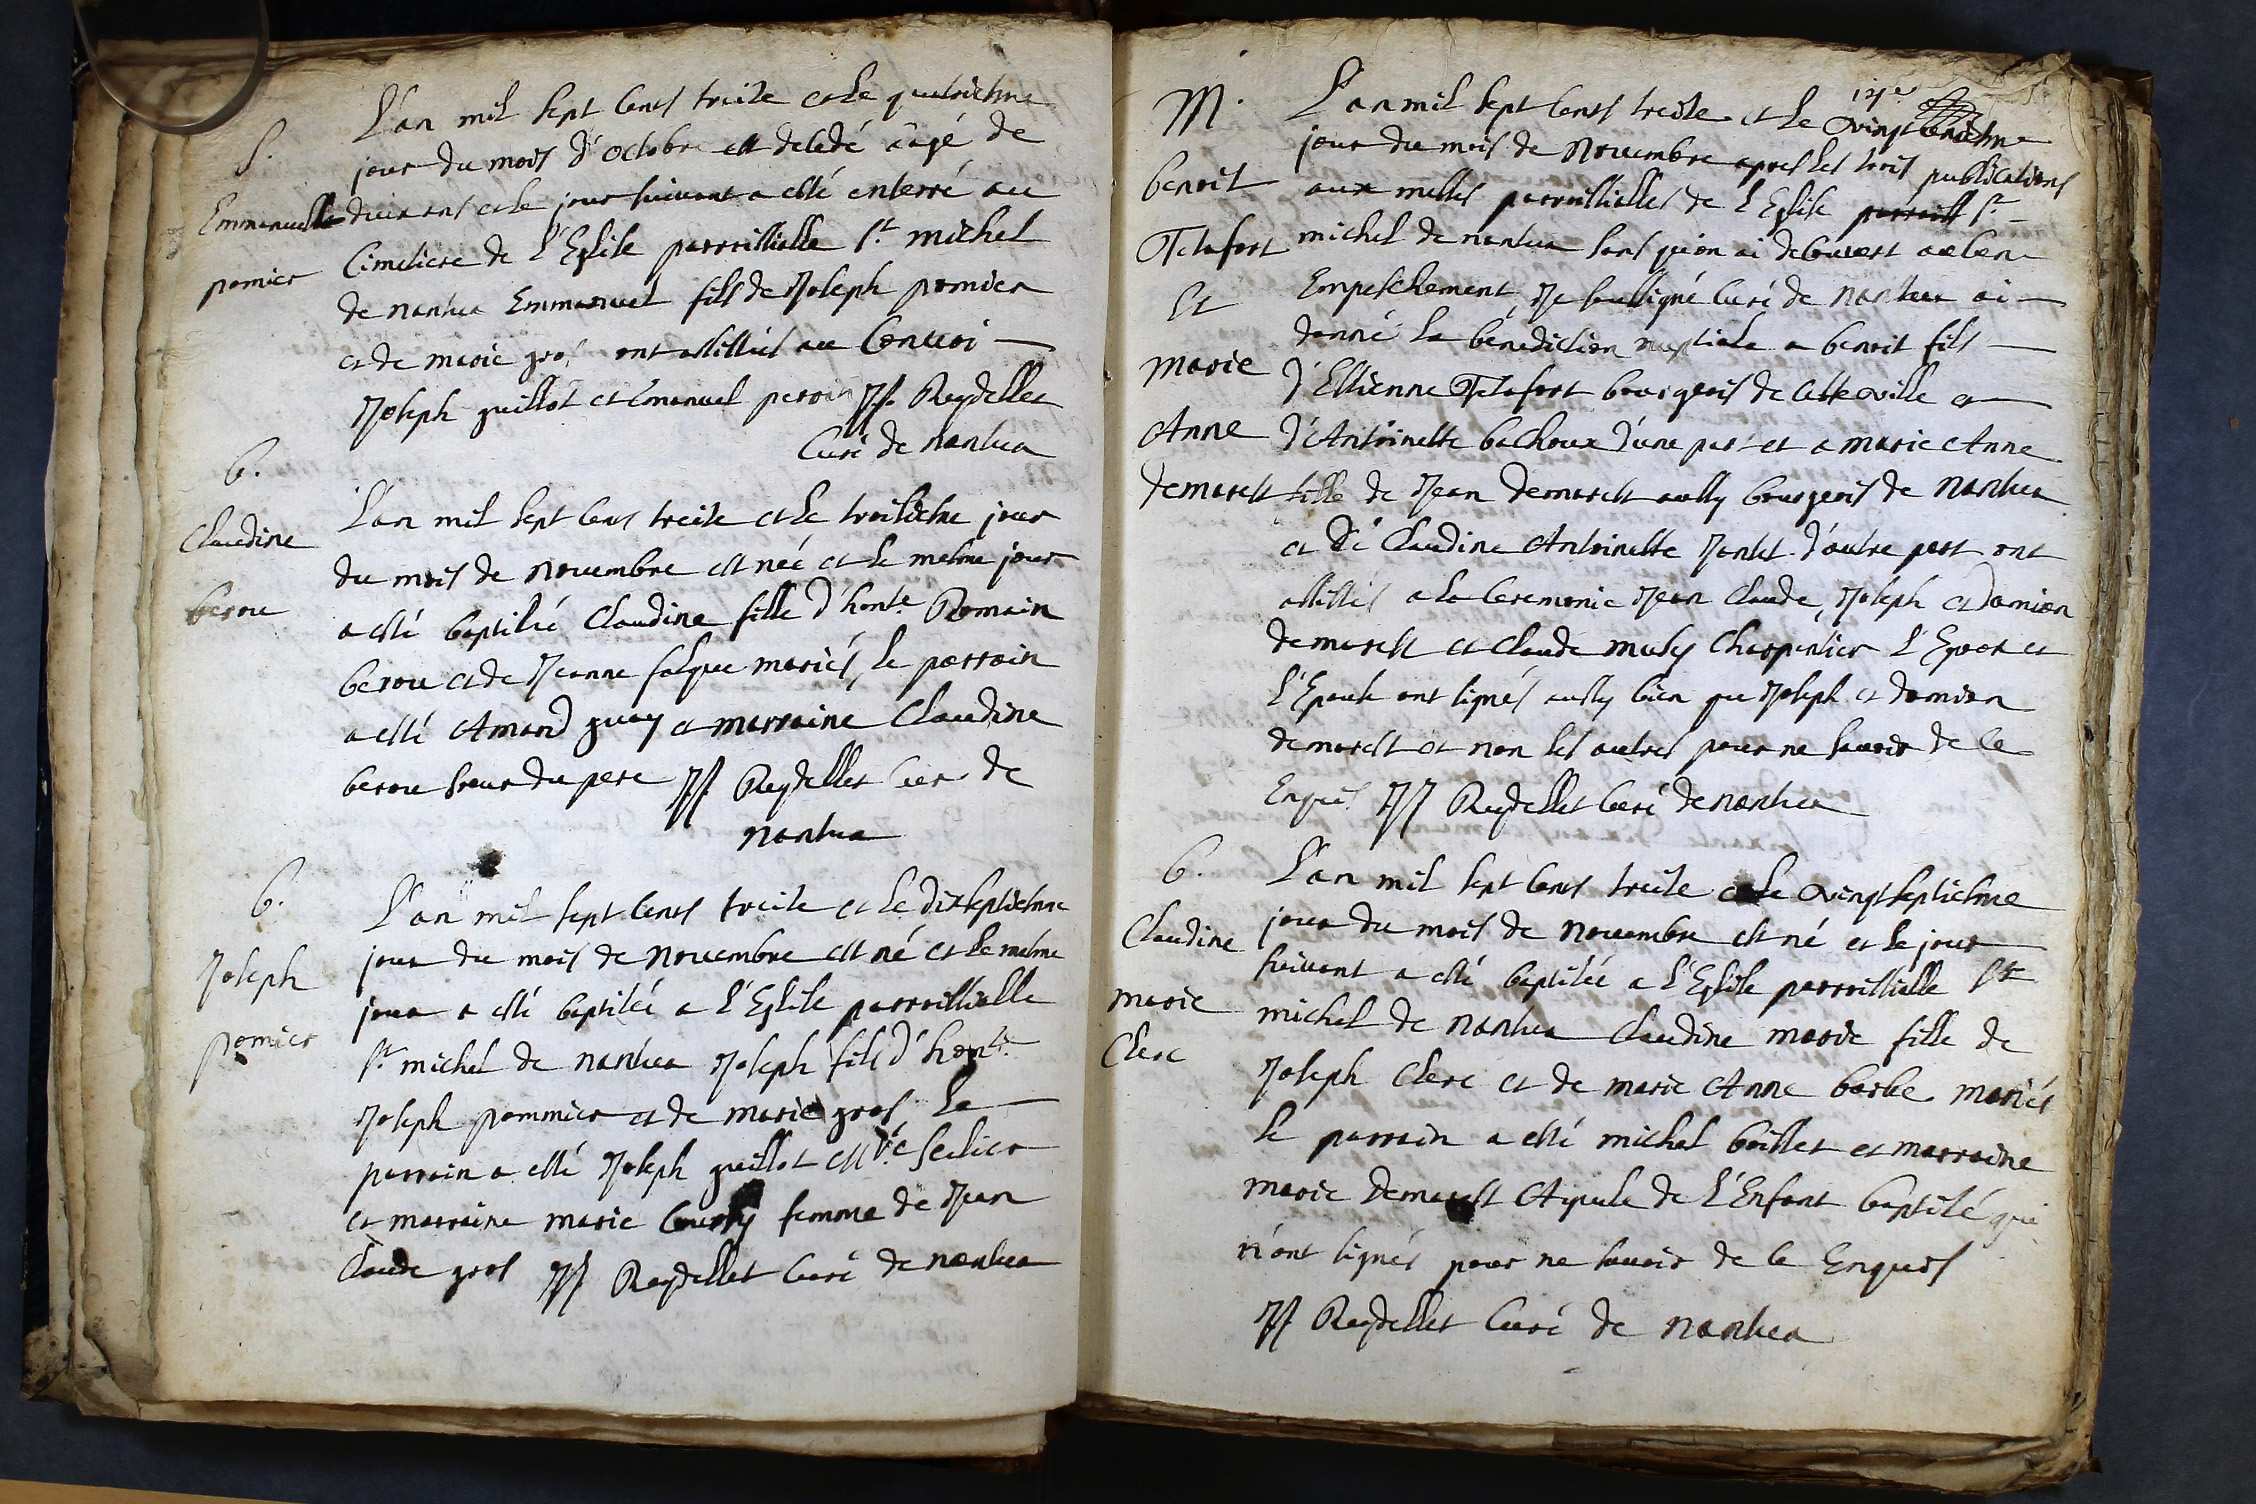 S.
Emmanuelle
pomier
L'an mil sept cents treise et le quatriesme
jour du mois d'octobre est decedé âagé de
deux ans et le jour suivant a esté enterré au
Cimetiere de l'Eglise parroissialle St. michel
de nantua Emmanuel fils de Joseph pomier
et de marie gros ont assistés au Convoi
Joseph guillot et Emanuel perrin JJ. Reydellet
Curé de nantua
b.
Claudine
berou
L'an mil sept cens treise et le troisiesme jour
du mois de novembre est née et le mesme jour
a esté baptisée Claudine fille d'hont.e Romain
berou et de Jeanne falque mariés, le parrain
a esté Amand guy et marraine Claudine
berou soeur du pere JJ Reydellet Curé de
nantua
b.
Joseph
pomier
L'an mil sept cents treise et le dixseptiesme
jour du mois de novembre est né et le mesme
jour a esté baptiséé a l'Eglise parroissialle
St. michel de nantua Joseph fils d'hont.e
Joseph pommier et de marie gros le
parrain a esté Joseph guillot
et marraine marie femme de Jean
Claude gros JJ Reydellet Curé de nantua
M.
benoit
Tetafort
et
marie
Anne
demarest
L'an mil sept cents treise et le vingt
jour du mois de novembre apres les trois publications
aux messes parroissialles de l'Eglise parroiss St.
michel de nantua sans qu'on ai decouvert aucun
Empeschement, Je soussigné Curé de nantua ai
donné la bénediction nuptiale a benoit fils
d'Estienne Tetafort bourgeois de cette ville et
d'Antoinette bachoux d'une part et a marie Anne
fille de Jean demarest aussy bourgeois de nantua
et de Claudine Antoinette Jantet d'autre part ont
assistés a la Ceremonie Jean Claude, Joseph et Damien
demarest et Claude musy Charpentier l'Epoux et
l'Epouse ont signés aussy bien que Joseph et damien
demarest et non les autres pour ne savoir de ce
Enquis JJ Reydellet Curé de nantua
b.
Claudine
marie
Clerc
L'an mil sept cents treise et le vingt septiesme
jour du mois de novembre est né et le jour
suivant a esté baptisée a l'Eglise parroissialle St
michel de nantua Claudine marie fille de
Joseph Clerc et de marie Anne barbe mariés
le parrain a esté michel boillet et marraine
marie demarest Ayeule de l'Enfant baptisé qui
n'ont signés pour ne savoir de ce Enquis
JJ Reydellet Curé de nantua